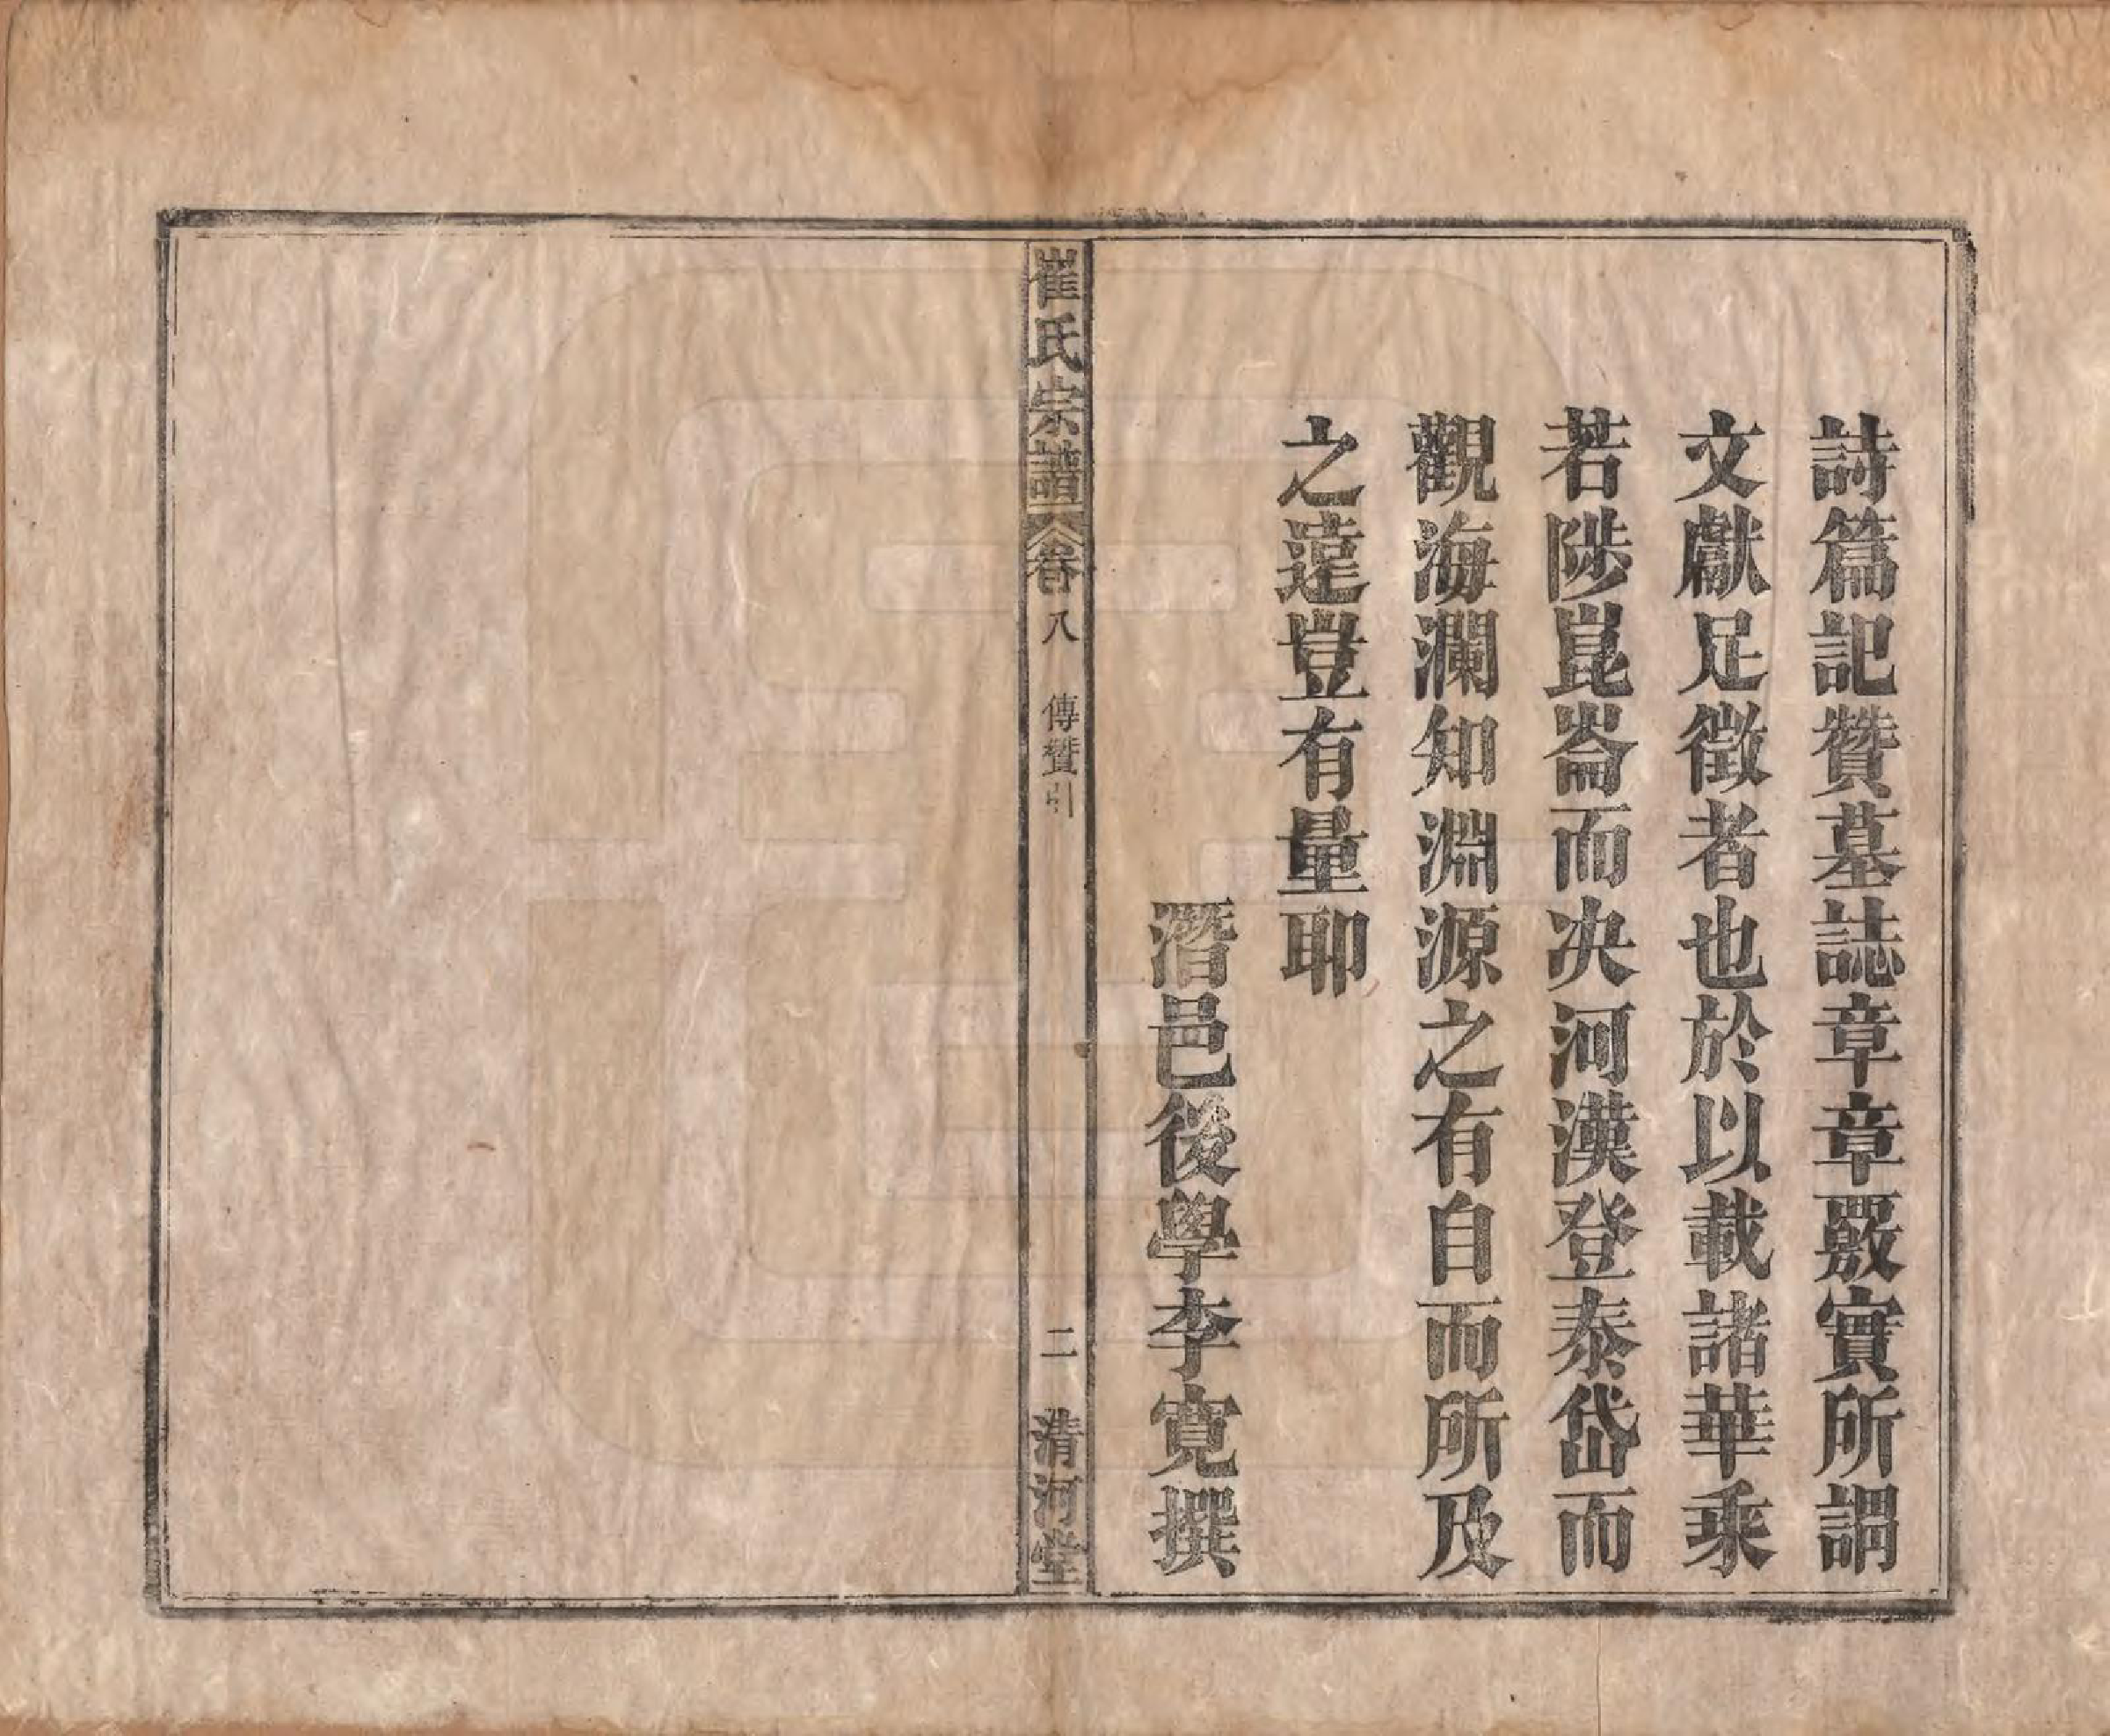 詩篇記贊墓誌章章覈實所謂
文獻足徵者也於以載諸華乘
若陟崑崙而决河漢登泰岱而
觀海瀾知淵源之有自而所及
之遠豈有量耶
潛邑後學李寬撰
崔氏宗譜 卷八 傳贊引 二 清河堂